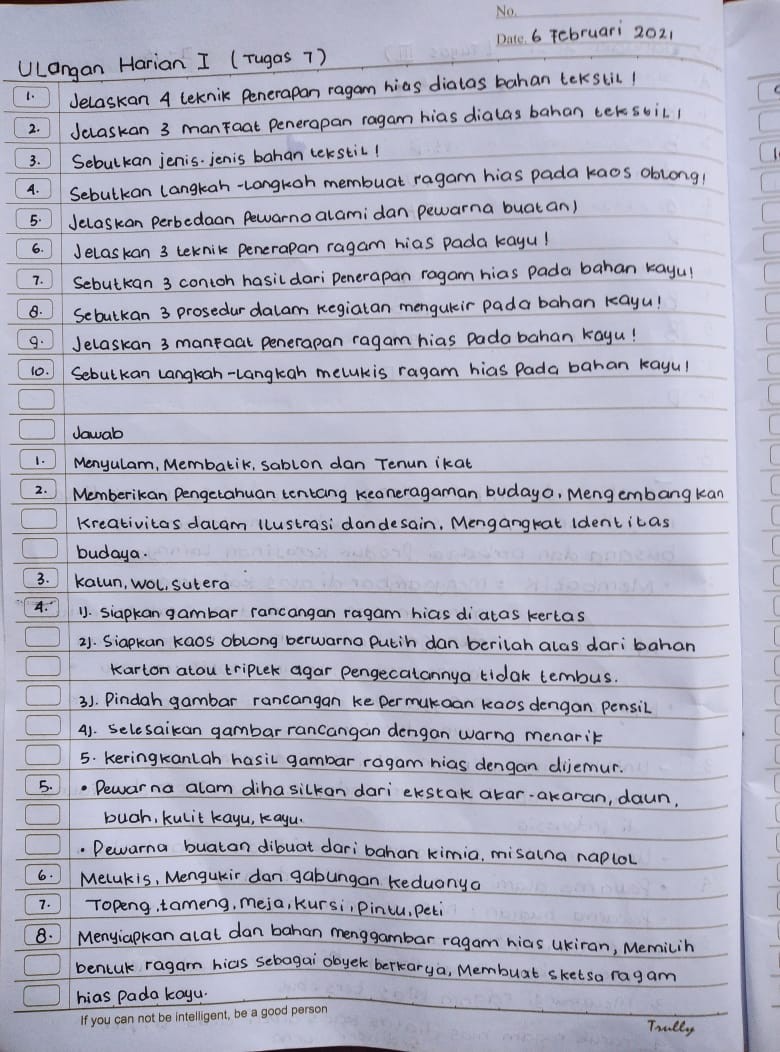 No.
Date. 6 Februari 2021
Ulangan Harian I (Tugas 7)
1. Jelaskan 4 teknik Penerapan ragam hias diatas bahan tekstil!
2. Jelaskan 3 manfaat Penerapan ragam hias diatas bahan tekstil!
3. Sebutkan jenis-jenis bahan tekstil!
4. Sebutkan langkah-langkah membuat ragam hias pada kaos oblong!
5. Jelaskan perbedaan pewarna alami dan pewarna buatan!
6. Jelaskan 3 teknik penerapan ragam hias pada kayu!
7. Sebutkan 3 contoh hasil dari penerapan ragam hias pada bahan kayu!
8. Sebutkan 3 prosedur dalam kegiatan mengukir pada bahan kayu!
9. Jelaskan 3 manfaat penerapan ragam hias pada bahan kayu!
10. Sebutkan langkah-langkah melukis ragam hias pada bahan kayu!
Jawab
1. Menyulam, Membatik, Sablon dan Tenun ikat
2. Memberikan pengetahuan tentang keaneragaman budaya, Mengembangkan
Kreativitas dalam ilustrasi dan desain, Mengangkat identitas
budaya.
3. Katun, wol, sutera
4. 1). Siapkan gambar rancangan ragam hias di atas kertas
2). Siapkan kaos oblong berwarna putih dan berilah alas dari bahan
karton atau triplek agar pengecatannya tidak tembus.
3). Pindah gambar rancangan ke permukaan kaos dengan pensil
4). Selesaikan gambar rancangan dengan warna menarik
5. Keringkanlah hasil gambar ragam hias dengan dijemur.
5. • Pewarna alam dihasilkan dari ekstak akar-akaran, daun,
buah, kulit kayu, kayu.
• Pewarna buatan dibuat dari bahan kimia, misalna naplol
6. Melukis, Mengukir dan gabungan keduanya
7. Topeng, tameng, meja, kursi, pintu, peti
8. Menyiapkan alat dan bahan menggambar ragam hias ukiran, Memilih
bentuk ragam hias sebagai obyek berkarya, Membuat sketsa ragam
hias pada kayu.
If you can not be intelligent, be a good person
Trully